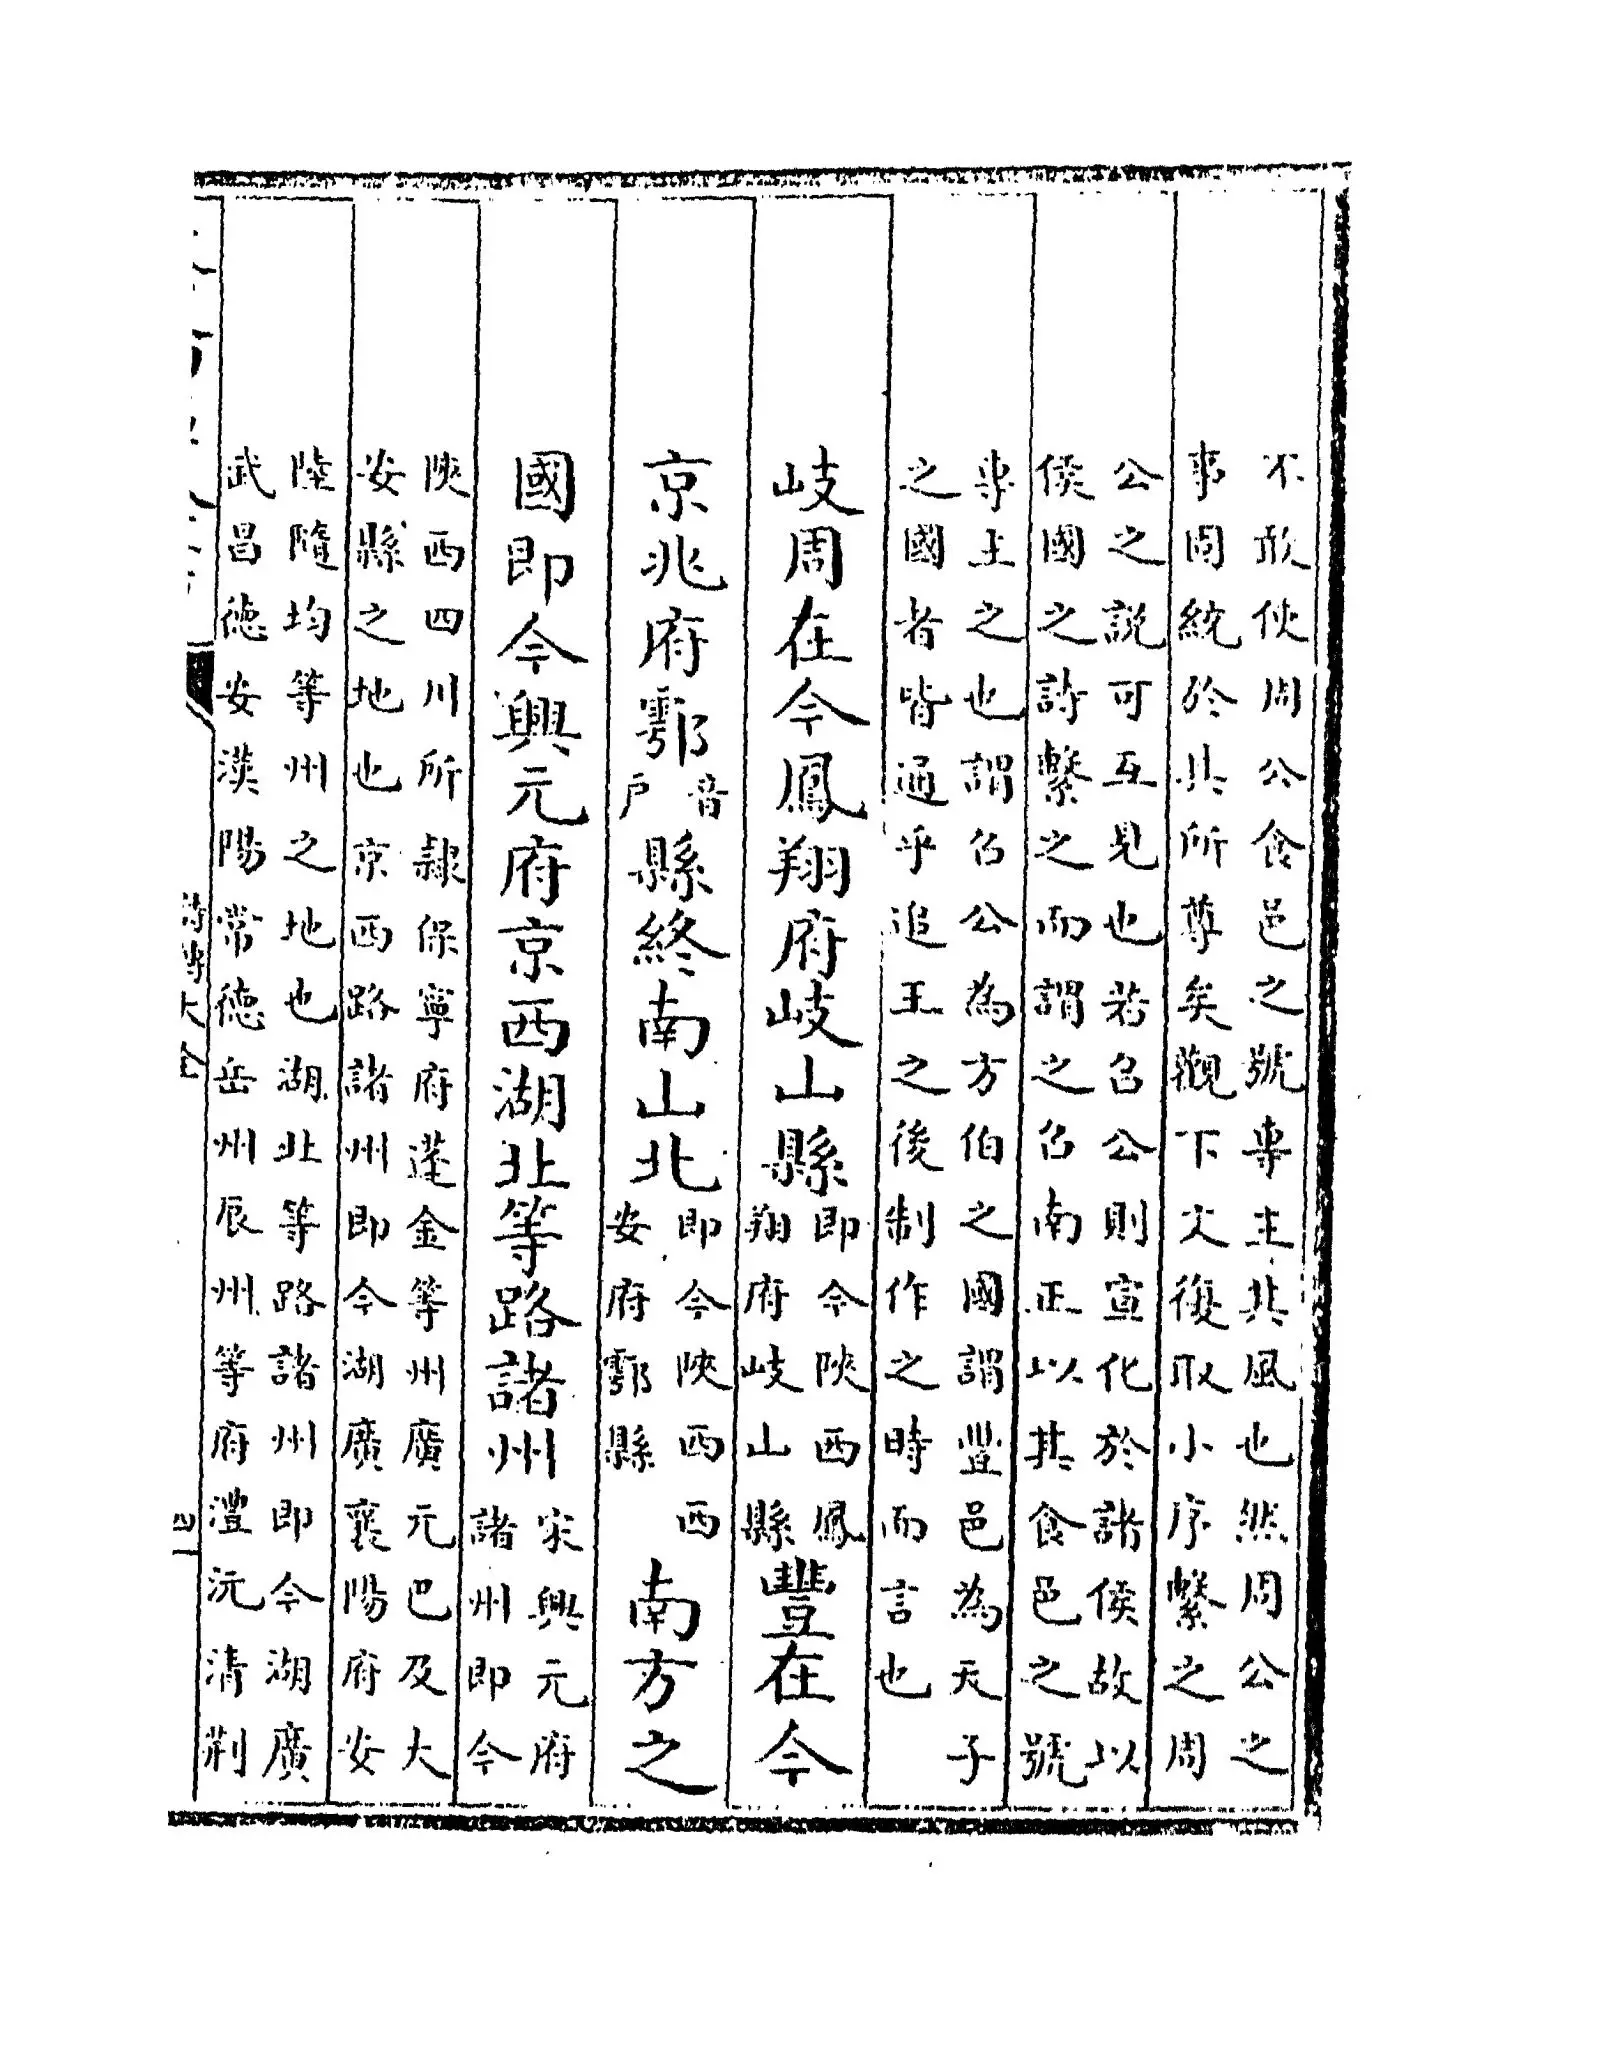 不敢使周公食邑之號專主其風也然周公之
事固統於其所尊矣觀下文復取小序繫之周
公之説可互見也若召公則宣化於諸侯故以
侯國之詩繫之而謂之召南正以其食邑之號
專主之也謂召公為方伯之國謂豐邑為天子
之國者皆通乎追王之後制作之時而言也
岐周在今鳳翔府岐山縣
即今陜西鳳
翔府岐山縣
豐在今
京兆府鄠
音
户
縣終南山北
即今陜西西
安府鄠縣
南方之
國即今興元府京西湖北等路諸州
宋興元府
諸州即今
陜西四川所隸保寧府蓬金等州廣元巴及大
安縣之地也京西路諸州即今湖廣襄陽府安
陸隨均等州之地也湖北等路諸州即今湖廣
武昌徳安漢陽常徳岳州辰州等府澧沅清荆